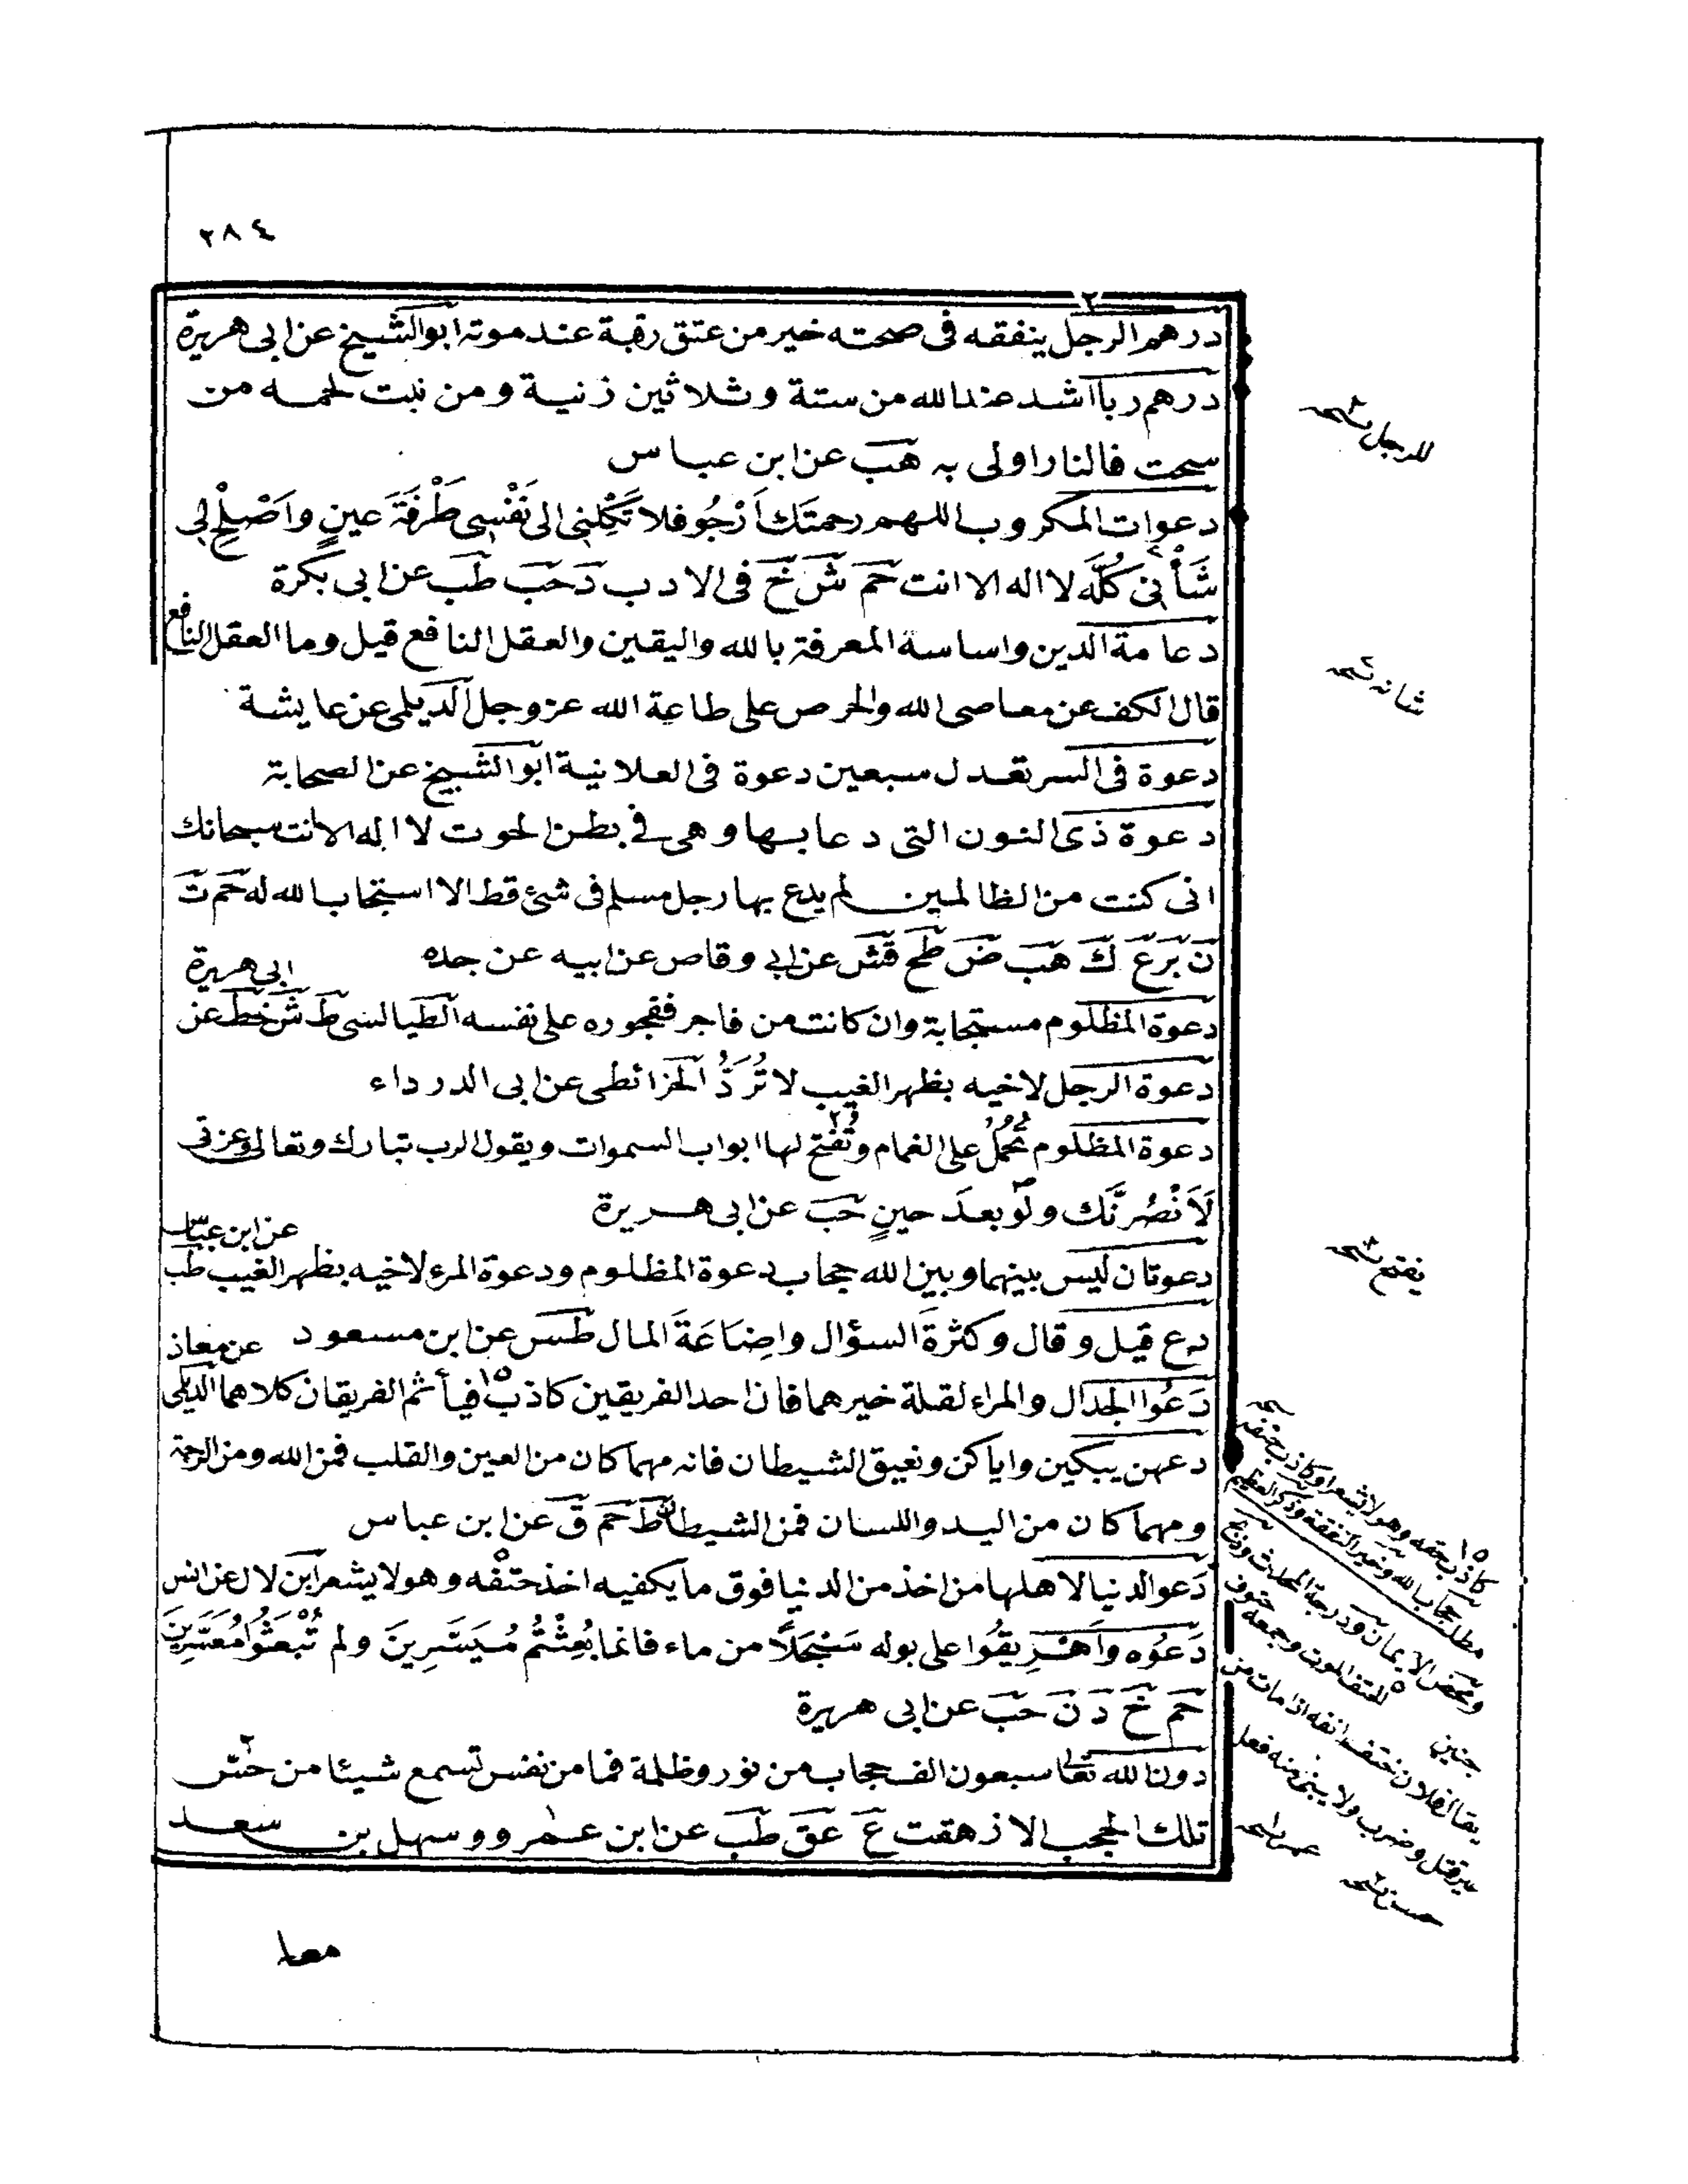 ٢٨٤
درهم الرجل ينفقه فى صحته خير من عتق رقبة عند موته ابو الشيخ عن ابى هريرة
درهم ربا اشد عند الله من ستة وثلاثين زنية ومن نبت لحمه من
سحت فالنار اولى به هب عن ابن عباس
دعوات المكروب اللهم رحمتك اَرْجُو فلا تَكِلْنِى الى نَفْسِى طَرْفَةَ عينٍ واَصْلِحْ لِى
شَأْنِى كُلَّه لا اله الا انت حم ش خ فى الادب د حب طب عن ابى بكرة
دعامة الدين واساسه المعرفة بالله واليقين والعقل النافع قيل وما العقل النافع
قال الكف عن معاصى الله والحرص على طاعة الله عز وجل الديلمى عن عايشة
دعوة فى السر تعدل سبعين دعوة فى العلانية ابو الشيخ عن الصحابة
دعوة ذى النون التى دعا بها وهى فى بطن الحوت لا اله الا انت سبحانك
انى كنت من الظالمين لم يدع بها رجل مسلم فى شئ قط الا استجاب الله له حم ت
ن بز ع ك هب ض طح قش عن ابى وقاص عن ابيه عن جده
دعوة المظلوم مستجابة وان كانت من فاجر ففجوره على نفسه الطيالسى ط ش خط عن ابى هريرة
دعوة الرجل لاخيه بظهر الغيب لا تُرَدُّ الخرائطى عن ابى الدرداء
دعوة المظلوم تُحْمَلُ على الغمام وتُفتح لها ابواب السموات ويقول الرب تبارك وتعالى وعزتى
لَاَنْصُرَنَّك ولَو بعدَ حينٍ حب عن ابى هريرة
دعوتان ليس بينهما وبين الله حجاب دعوة المظلوم ودعوة المرء لاخيه بظهر الغيب طب عن ابن عباس
دع قيل وقال وكثرةَ السؤال واِضَاعَةَ المال طس عن ابن مسعود
دَعُوا الجدال والمراء لقلة خيرهما فان احد الفريقين كاذب فيأثم الفريقان كلاهما الديلمى عن معاذ
دعهن يبكين واياكن ونعيق الشيطان فانه مهما كان من العين والقلب فمن الله ومن الرحمة
ومهما كان من اليد واللسان فمن الشيطان ط حم ق عن ابن عباس
دَعوا الدنيا لاهلها من اخذ من الدنيا فوق ما يكفيه اخذ حتفه وهو لا يشعر ابن لال عن انس
دَعُوه واَهْرِيقُوا على بوله سَجْلًا من ماء فانما بُعِثْتُمْ مُيَسِّرِينَ ولم تُبْعَثُوا مُعَسِّرِينَ
حم خ د ن حب عن ابى هريرة
دون الله تعالى سبعون الف حجاب من نور وظلمة فما من نفس تسمع شيئا من حسّ
تلك الحجب الا زهقت ع عق طب عن ابن عمرو وسهل بن سعد
للرجل نسخه
شانه نسخه
يفتح نسخه
مطلب حجاب الله
للحتف الموت وجمعه حتوف
يقال فلان حتف انفه اذا مات من
غير قتل وضرب ولا يبنى منه فعل
حسن نسخه
معا